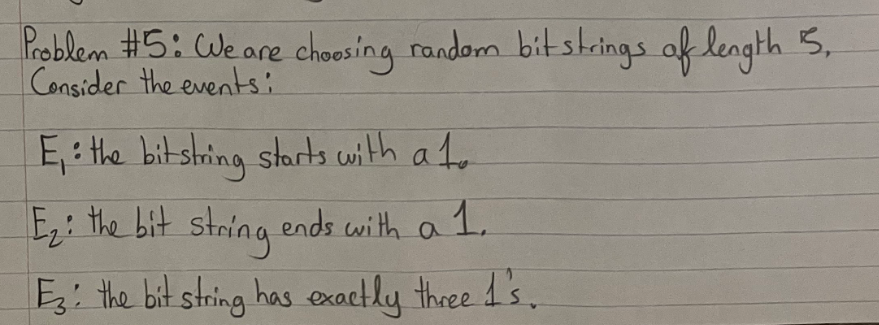 Problem #5: We are choosing random bit strings of length 5.
Consider the events:
E₁: the bitstring starts with a 1.
E₂: the bit string ends with a 1.
E₃: the bit string has exactly three 1's.